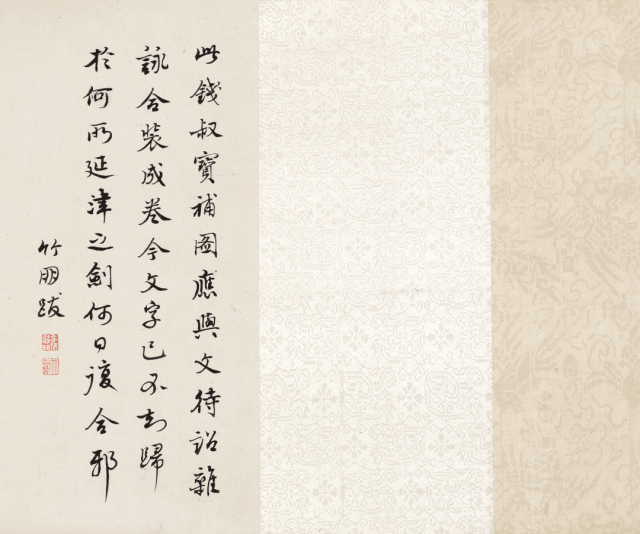 此錢叔寶補圖應與文待詔雜
詠合裝成卷今文字已不知歸
於何所延津之劍何日復合邪
竹朋跋